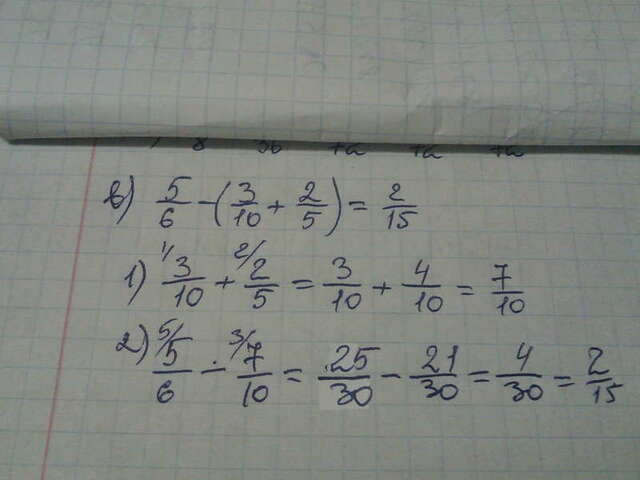 в) 5/6 - (3/10 + 2/5) = 2/15
1) 1/ 3/10 + 2/ 2/5 = 3/10 + 4/10 = 7/10
2) 5/ 5/6 - 3/ 7/10 = 25/30 - 21/30 = 4/30 = 2/15